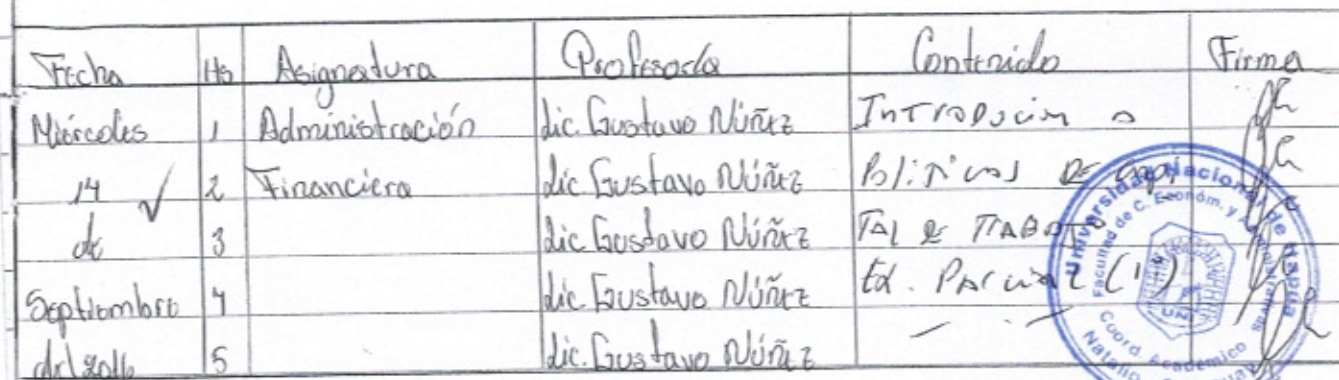 Fecha Hs Asignatura Profesor/a Contenido Firma
Miércoles 1 Administración Lic. Gustavo Núñez Introducion a
14 2 Financiera Lic. Gustavo Núñez Politicas de Capi
de 3 Lic. Gustavo Núñez TAL DE TRABAJO
Septiembre 4 Lic. Gustavo Núñez Ex. Parcial (1º)
del 2016 5 Lic. Gustavo Núñez
Universidad Nacional de Itapúa
Facultad de C. Económ. y
UNI
Coord. Académico
Natalio